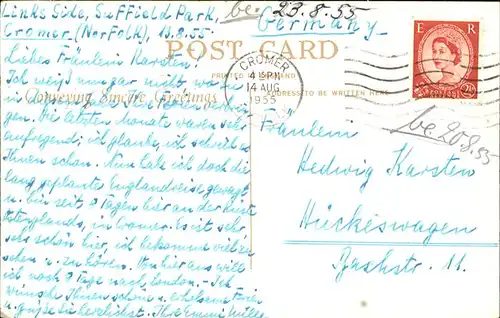 Links Side, Suffield Park,
Cromer (Norfolk), 13.8.55.
be. 23.8.55
Germany
POST CARD
PRINTED IN ENGLAND
ADDRESS TO BE WRITTEN HERE
Conveying Sincere Greetings
CROMER
4 15 PM
14 AUG
1955
E R
POSTAGE
2½D
be. 20.8.55
Liebes Fräulein Karsten!
Ich weiß nur gar nicht, wann
die letzten Monate waren sehr
aufregend; ich glaube, ich schrieb es
Ihnen schon. Nun habe ich doch die
lang geplante Englandreise gewagt
u. bin seit 9 Tagen hier an der Küste
Ostenglands, in Cromer. Es ist sehr,
sehr schön hier, ich bekomme viel zu
sehen u. zu hören. Von hier aus will
ich noch 8 Tage nach London. - Ich
wünsche Ihnen schöne u. erholsame Ferien
u. grüße Sie herzlichst. Ihre
Fräulein
Hedwig Karsten
Hückeswagen
Bachstr. 11.